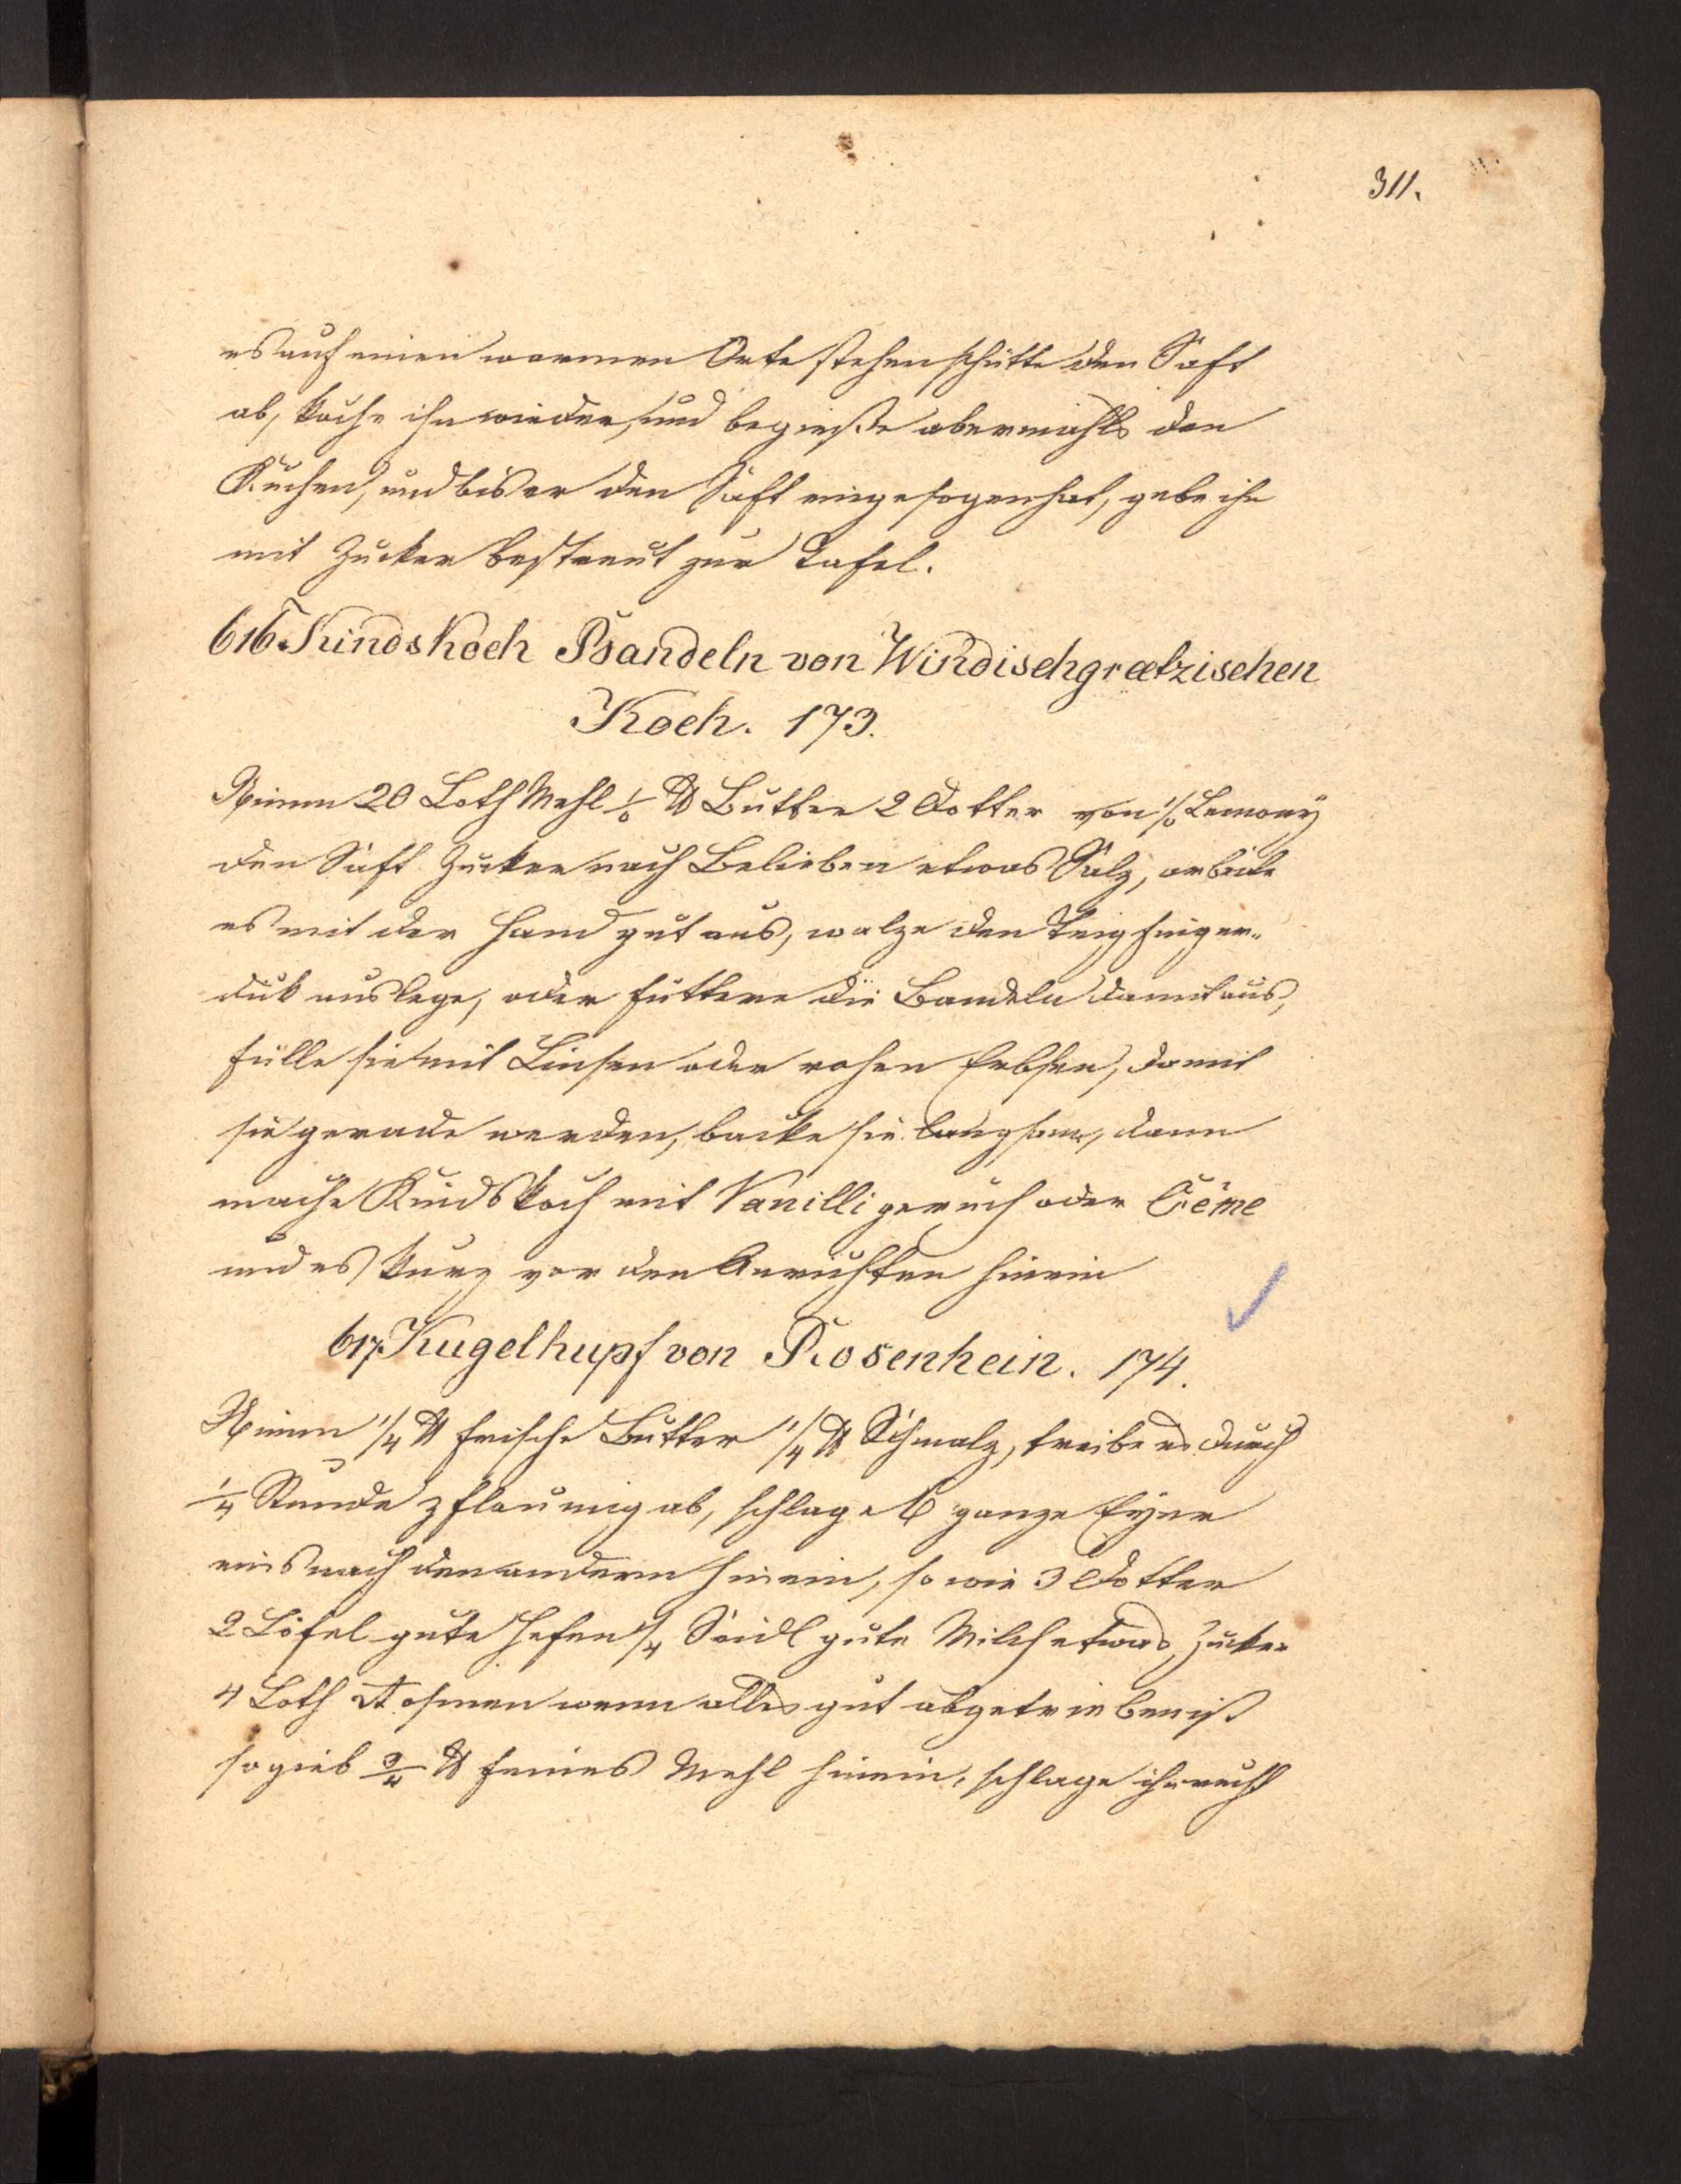 311.
es auf einen warmen Orte stehen schütte den Saft
ab, koche ihn wieder, und begieße abermahls den
Kuchen, und bis er den Saft eingesogen hat, gebe ihn
mit Zucker bestreut zur Tafel.
616 Kindskoch Bandeln von Windischgrætzischen
Koch. 173.
Nimm 20 Loth Mehl ½ ℔ Butter 2 Dotter von ½ Lemony
den Saft Zucker nach Belieben etwas Salz, arbeite
es mit der Hand gut aus, walze den Teig finger„
dick auslege, oder füttere die Bandeln damit aus,
fülle sie mit Linsen oder rohen Erbsen, damit
sie gerade werden, backe sie langsam, dann
mache Kindskoch mit Vanilli geruch oder Crême
und es kurz vor den Anrichten hinein
617 Kugelhupf von Rosenhein. 174.
Nimm ¼ ℔ frische Butter ¼ ℔ Schmalz, treibe es durch
¼ Stunde pflaumig ab, schlage 6 ganze Eyer
eins nach den andern hinein, so wie 3 Dotter
2 Löfel gute Hefen ¼ Seidl gute Milch etwas Zucker
4 Loth wenn alles gut abgetrieben ist
so gieb ¾ ℔ feines Mehl hinein, schlage ihn recht